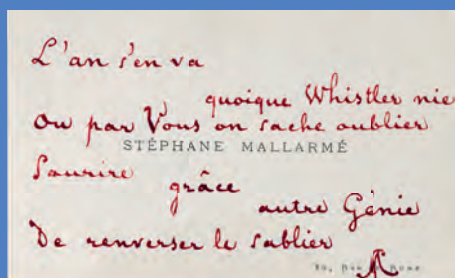 L'an s'en va
quoique Whistler nie
Ou par Vous on sache oublier
STÉPHANE MALLARMÉ
Sourire
grâce
autre Génie
De renverser le sablier
Rue